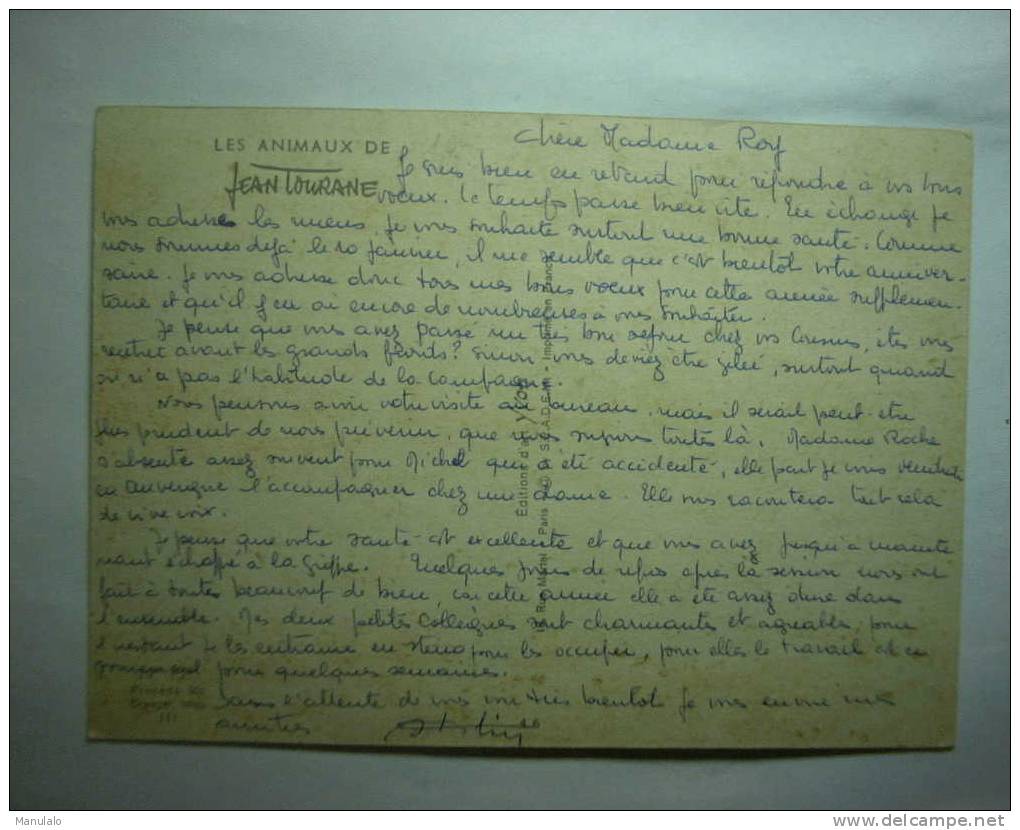 LES ANIMAUX DE
JEAN TOURANE
Chère Madame Roy
Je suis bien en retard pour répondre à vos bons
voeux. Le temps passe bien vite. En échange je
vous adresse les miens, je vous souhaite surtout une bonne santé. Comme
nous sommes déjà le 10 Janvier, il me semble que c'est bientôt votre anniver-
saire. Je vous adresse donc tous mes bons voeux pour cette année supplémen-
taire et qu'il y en ai encore de nombreuses à vous souhaiter.
Je pense que vous avez passé un très bon séjour chez vos Cousins, êtes vous
rentrée avant les grands froids? Sinon vous deviez être gelée, surtout quand
on n'a pas l'habitude de la Campagne.
Nous pensons avoir votre visite au bureau, mais il serait peut-être
plus prudent de nous prévenir, que nous soyons toutes là. Madame Roche
s'absente assez souvent pour Michel qui a été accidenté, elle part je vous
en Auvergne l'accompagner chez une dame. Elle vous racontera tout cela
de vive voix.
Je pense que votre santé est excellente et que vous avez jusqu'à mainte
nant échappé à la grippe. Quelques jours de repos après la session nous ont
fait à toutes beaucoup de bien, car cette année elle a été assez dure dans
l'ensemble. Mes deux petites Collègues sont charmantes et agréables, pour
l'instant je les entraîne en sténo pour les occuper, pour elles le travail est en
pour quelques semaines.
Dans l'attente de vous voir très bientôt je vous envoie mes
amitiés
Editions d'art YVON
15, Rue Martel - Paris - S.P.A.D.E.M. - Imprimé en France
Manulalo
www.delcampe.net